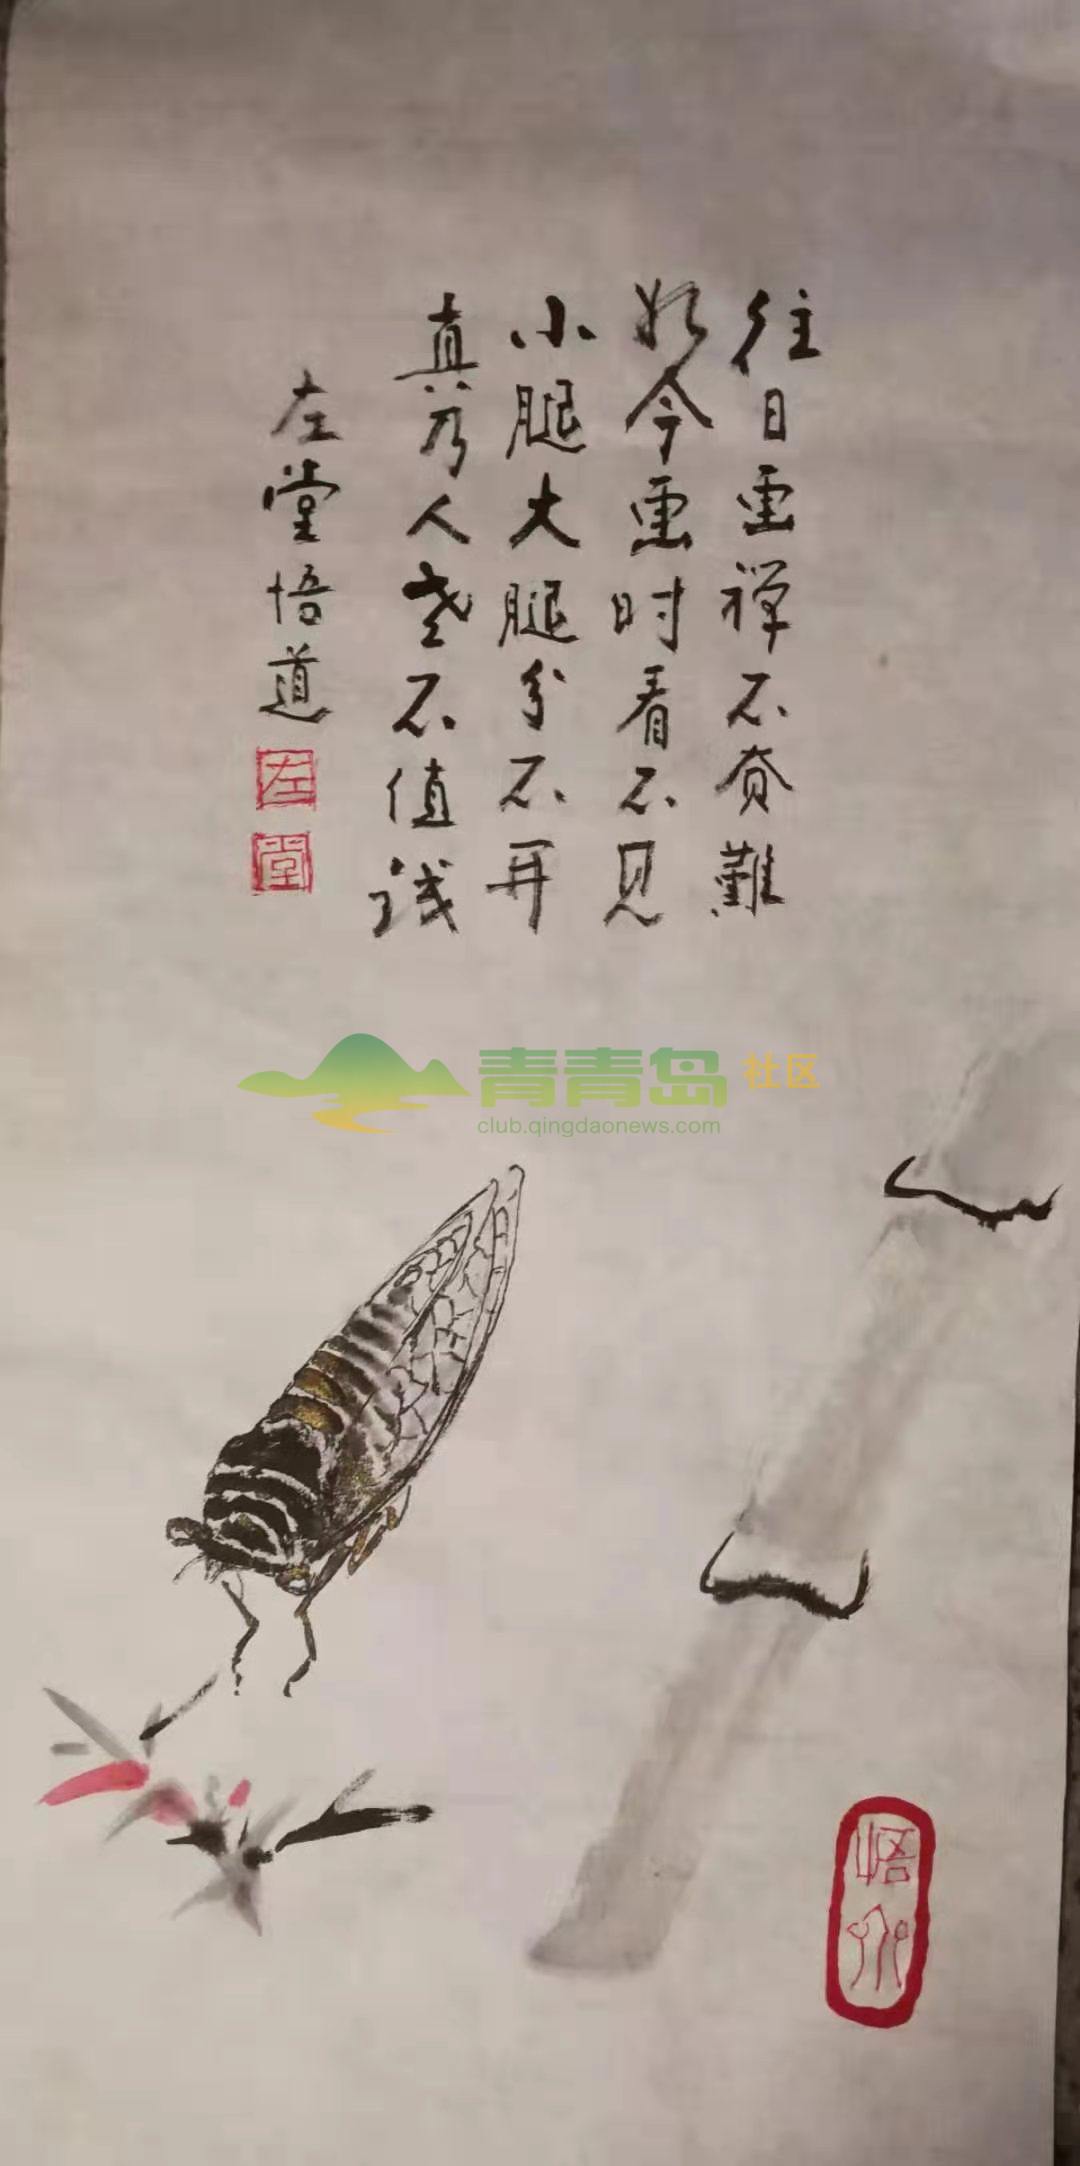 往日画禅不费難
如今画时看不见
小腿大腿分不开
真乃人老不值钱
左堂悟道
左
堂
青青岛社区
club.qingdaonews.com
悟